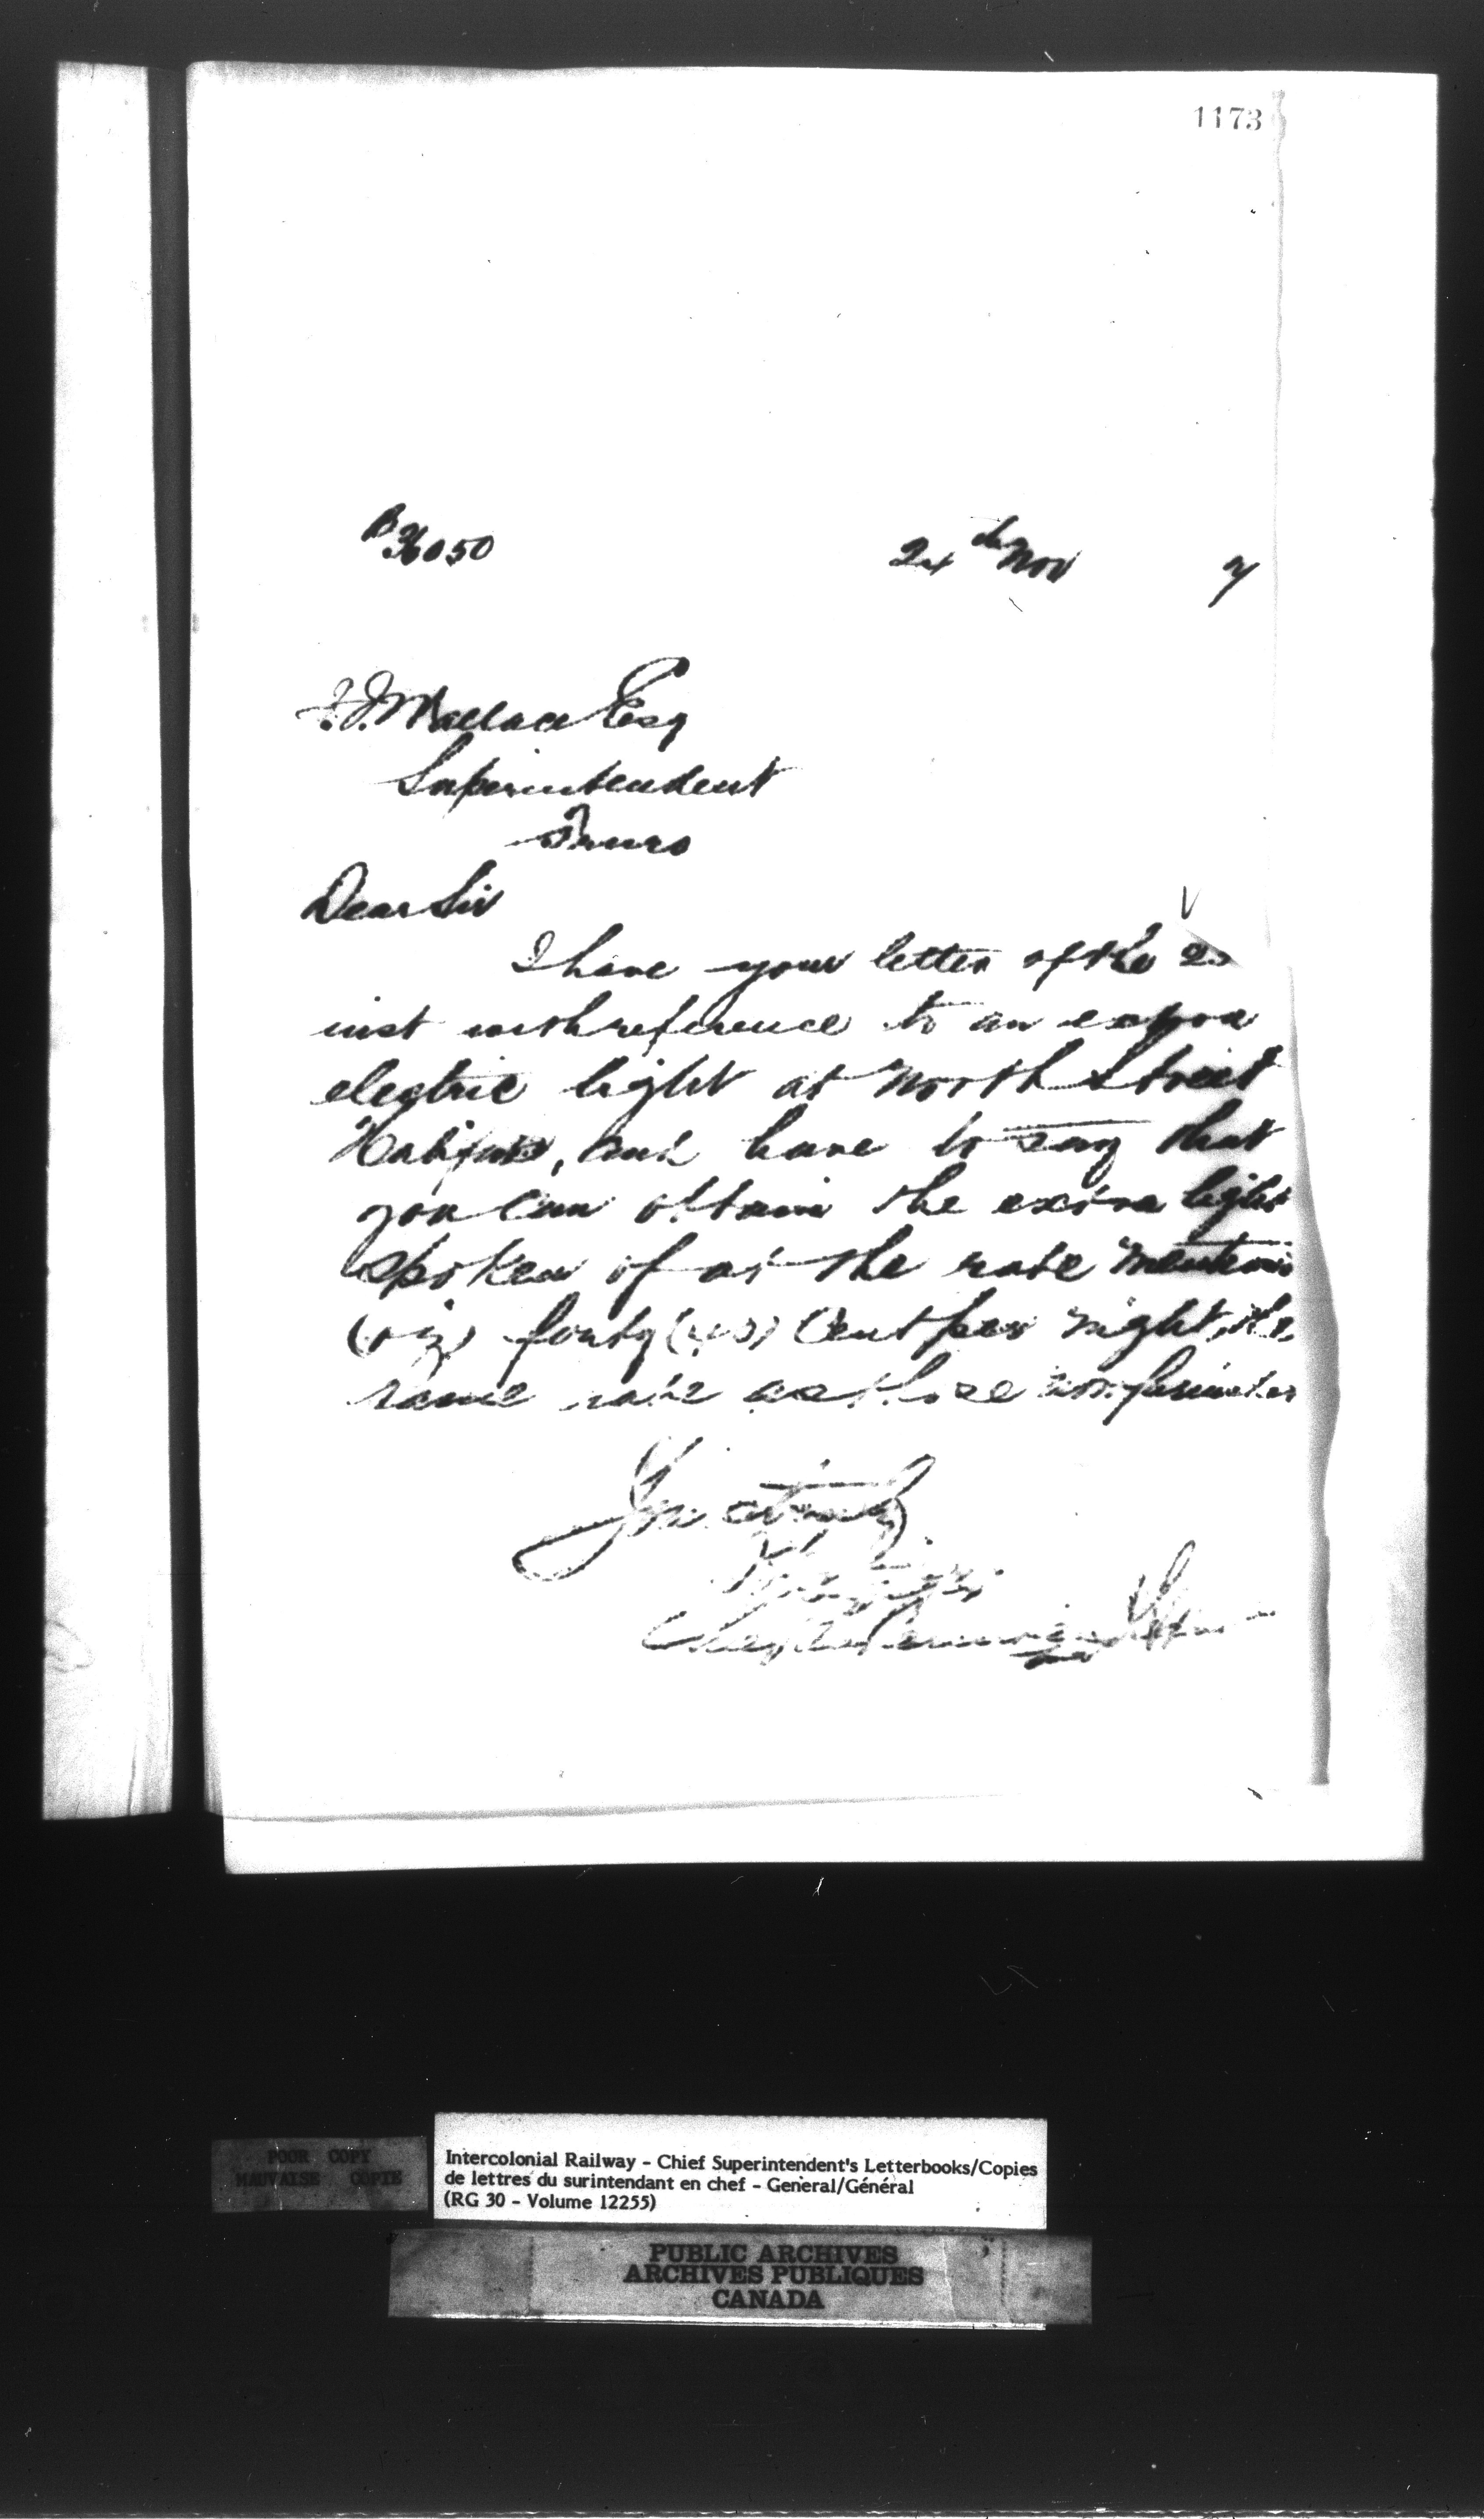 1173
36050
24th Nov 7
J.J. Wallace Esq
Superintendent
Truro
Dear Sir
I have your letter of the
inst with reference to an extra
electric light at North Street
Halifax, and have to say that
you can obtain the extra light
spoken of at the rate
(viz) forty (40) Cent per night, the
same rate as those now
Yours truly
Chief Superintendent
POOR COPY
MAUVAISE COPIE
Intercolonial Railway - Chief Superintendent's Letterbooks/Copies
de lettres du surintendant en chef - General/Général
(RG 30 - Volume 12255)
PUBLIC ARCHIVES
ARCHIVES PUBLIQUES
CANADA